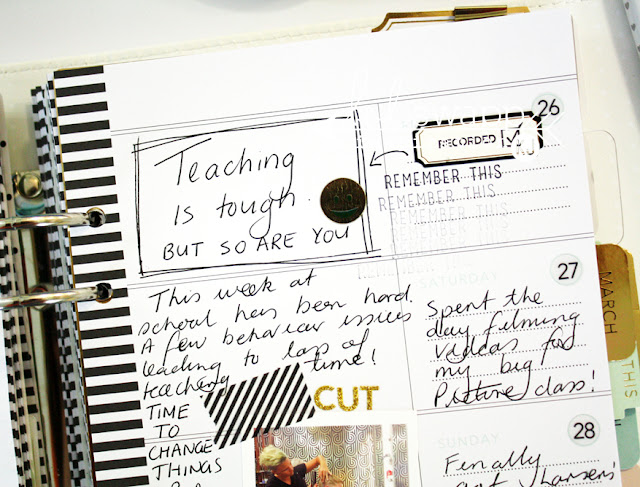 Teaching
IS tough.
BUT SO ARE YOU
26
RECORDED
REMEMBER THIS
REMEMBER THIS
REMEMBER THIS
REMEMBER THIS
This week at
school has been hard.
A few behaviour issues
leading to loss of
teaching time!
TIME
TO
CHANGE
THINGS
CUT
SATURDAY
27
Spent the
day filming
videos for
my big
Picture class!
SUNDAY
28
Finally
got
MARCH
THIS